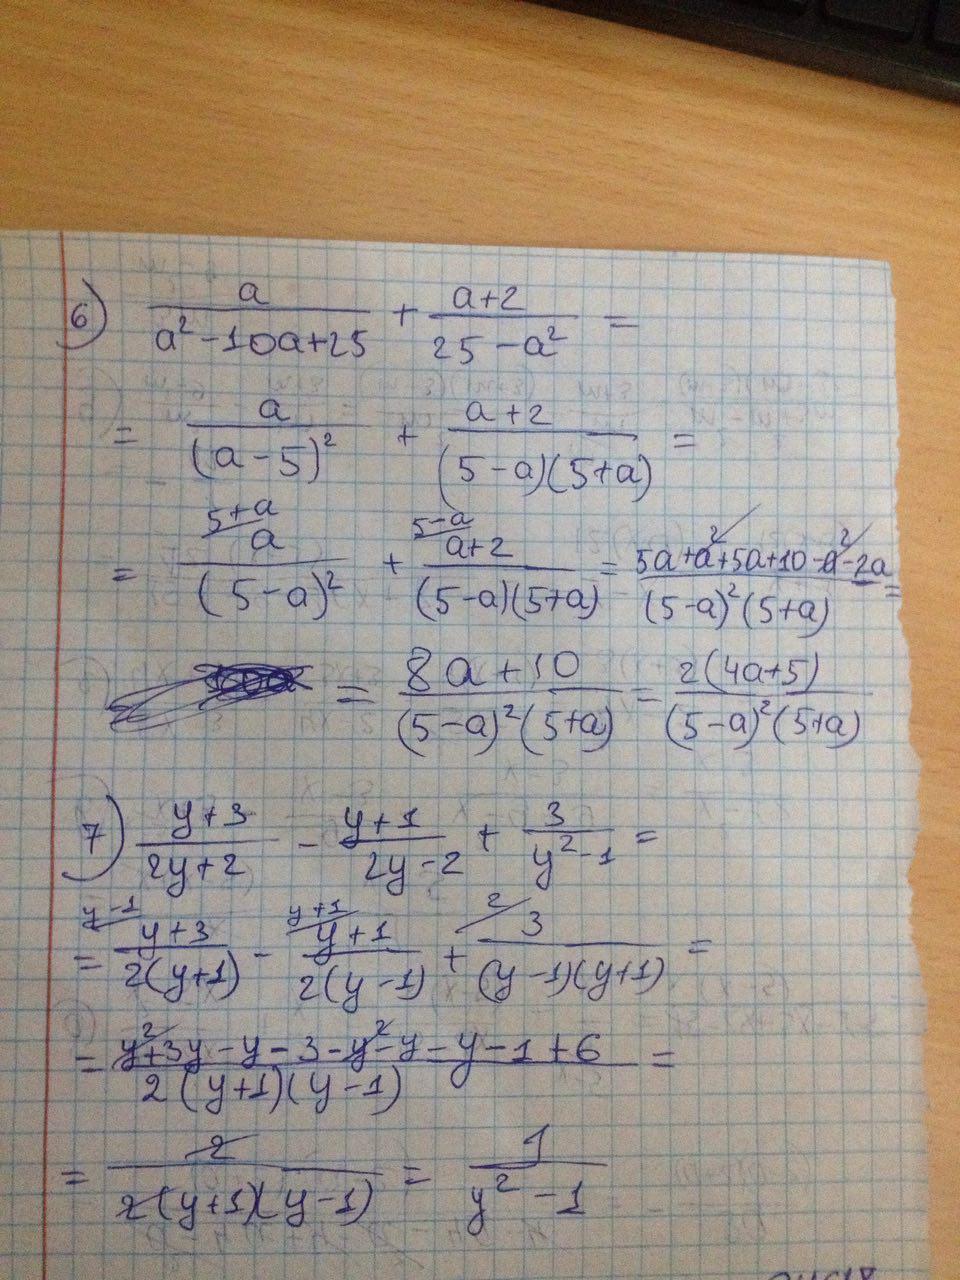 6) a/(a²-10a+25) + (a+2)/(25-a²) =
= a/(a-5)² + (a+2)/((5-a)(5+a)) =
= 5+a/ a/(5-a)² + 5-a/ (a+2)/((5-a)(5+a)) = (5a+a²+5a+10-a²-2a)/((5-a)²(5+a)) =
= (8a+10)/((5-a)²(5+a)) = 2(4a+5)/((5-a)²(5+a))
7) (y+3)/(2y+2) - (y+1)/(2y-2) + 3/(y²-1) =
= y-1/ (y+3)/(2(y+1)) - y+1/ (y+1)/(2(y-1)) + 2/ 3/((y-1)(y+1)) =
= (y²+3y-y-3-y²-y-y-1+6)/(2(y+1)(y-1)) =
= 2/(2(y+1)(y-1)) = 1/(y²-1)